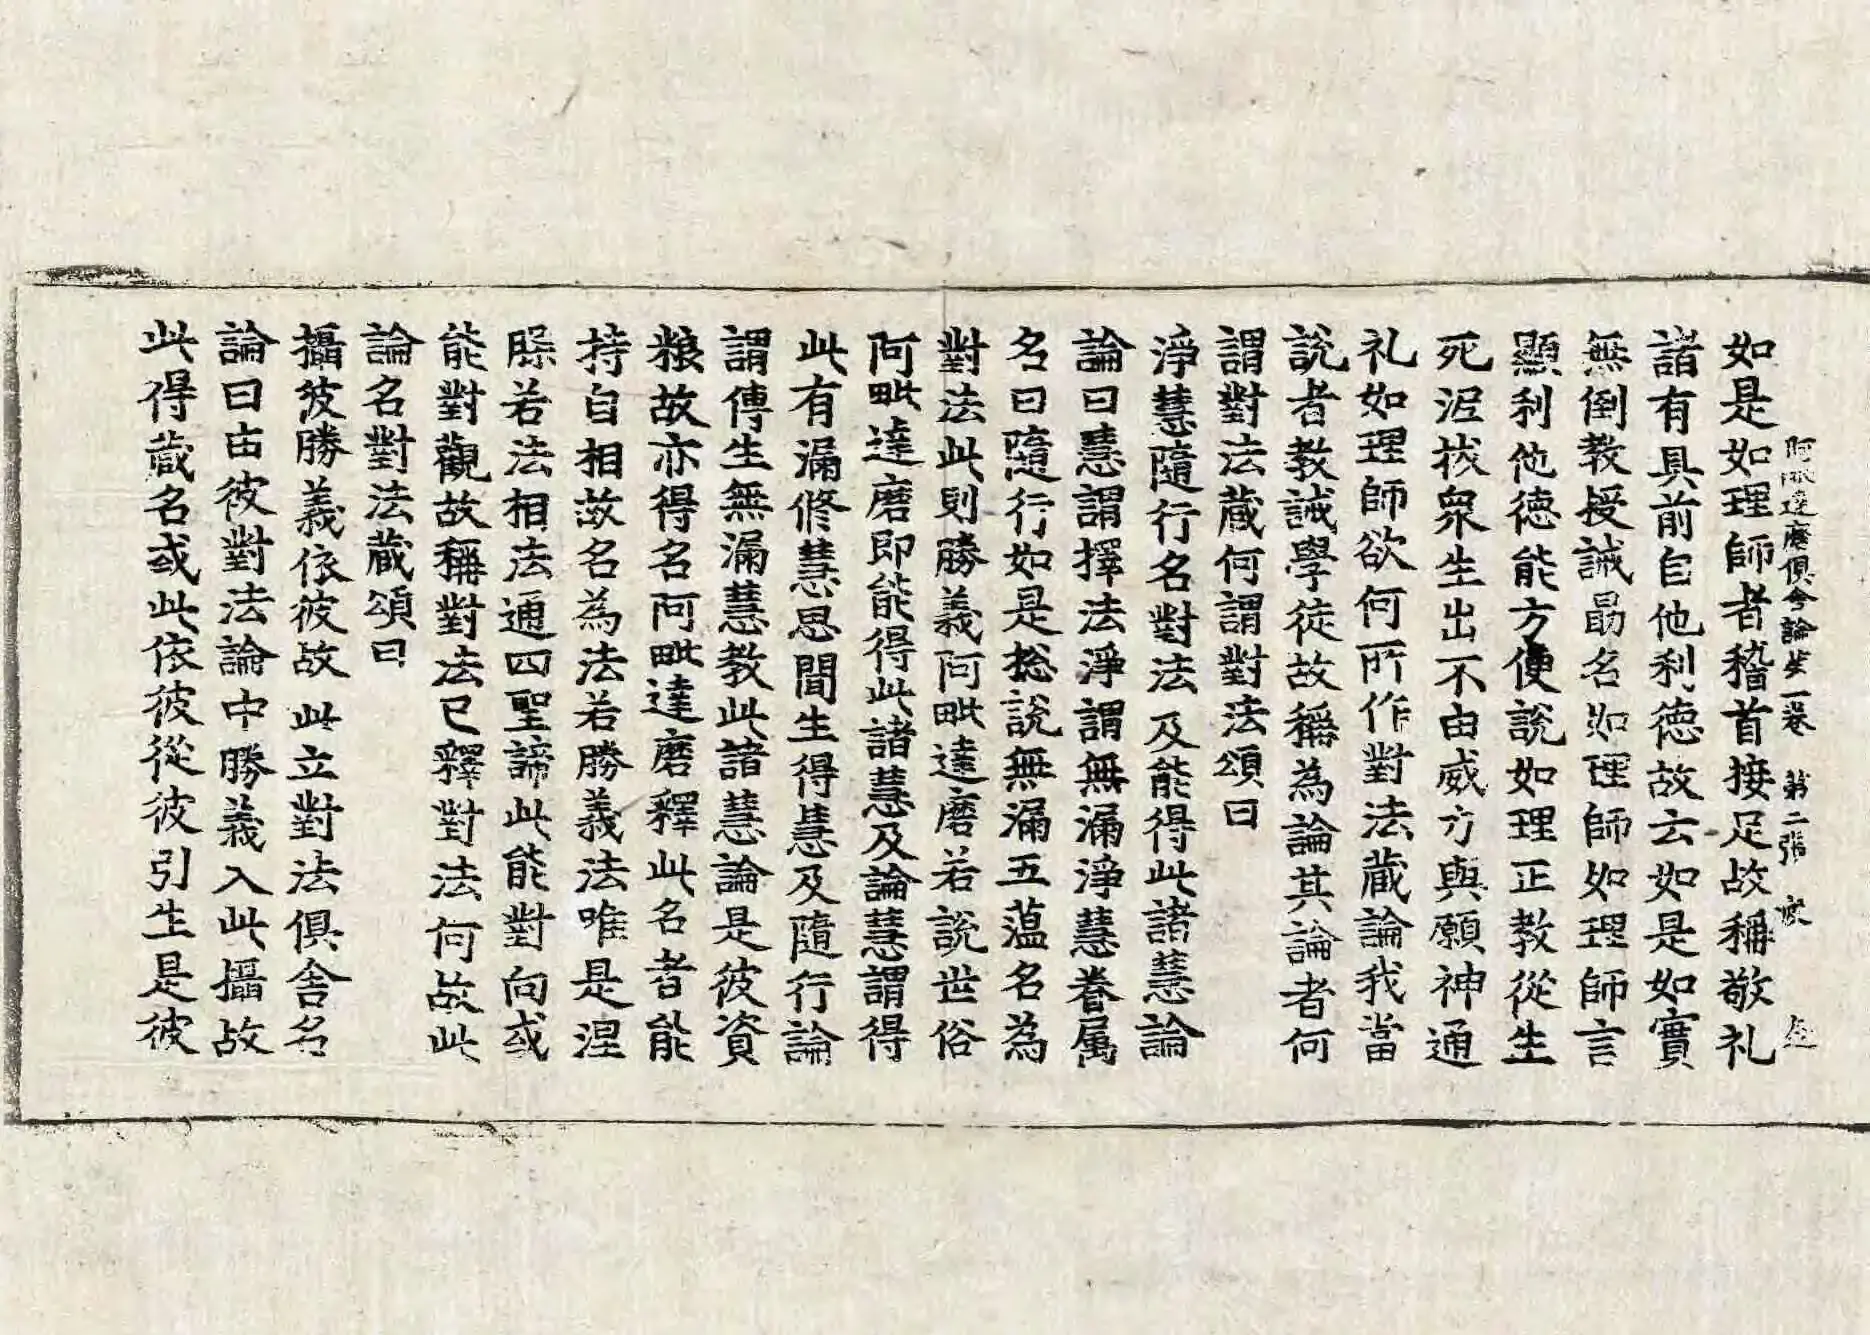 阿毗達磨俱舍論第一卷 第二張
如是如理師者稽首接足故稱敬礼
諸有具前自他利德故云如是如實
無倒教授誡勗名如理師如理師言
顯利他德能方便說如理正教從生
死泥拔衆生出不由威力與願神通
礼如理師欲何所作對法藏論我當
說者教誡學徒故稱為論其論者何
謂對法藏何謂對法頌曰
淨慧隨行名對法 及能得此諸慧論
論曰慧謂擇法淨謂無漏淨慧眷属
名曰隨行如是捴說無漏五蘊名為
對法此則勝義阿毗達磨若說世俗
阿毗達磨即能得此諸慧及論慧謂得
此有漏修慧思聞生得慧及隨行論
謂傳生無漏慧教此諸慧論是彼資
粮故亦得名阿毗達磨釋此名者能
持自相故名為法若勝義法唯是涅
槃若法相法通四聖諦此能對向或
能對觀故稱對法已釋對法何故此
論名對法藏頌曰
攝彼勝義依彼故 此立對法俱舍名
論曰由彼對法論中勝義入此攝故
此得藏名或此依彼從彼引生是彼